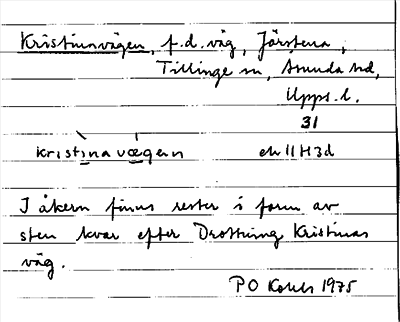 Kristinavägen, f.d. väg, Järstena,
Tillinge sn, Åsunda hd,
Upps. l.
31
kristìnavǽgen ek 11H3d
I åkern finns rester i form av
sten kvar efter Drottning Kristinas
väg.
PO 1975